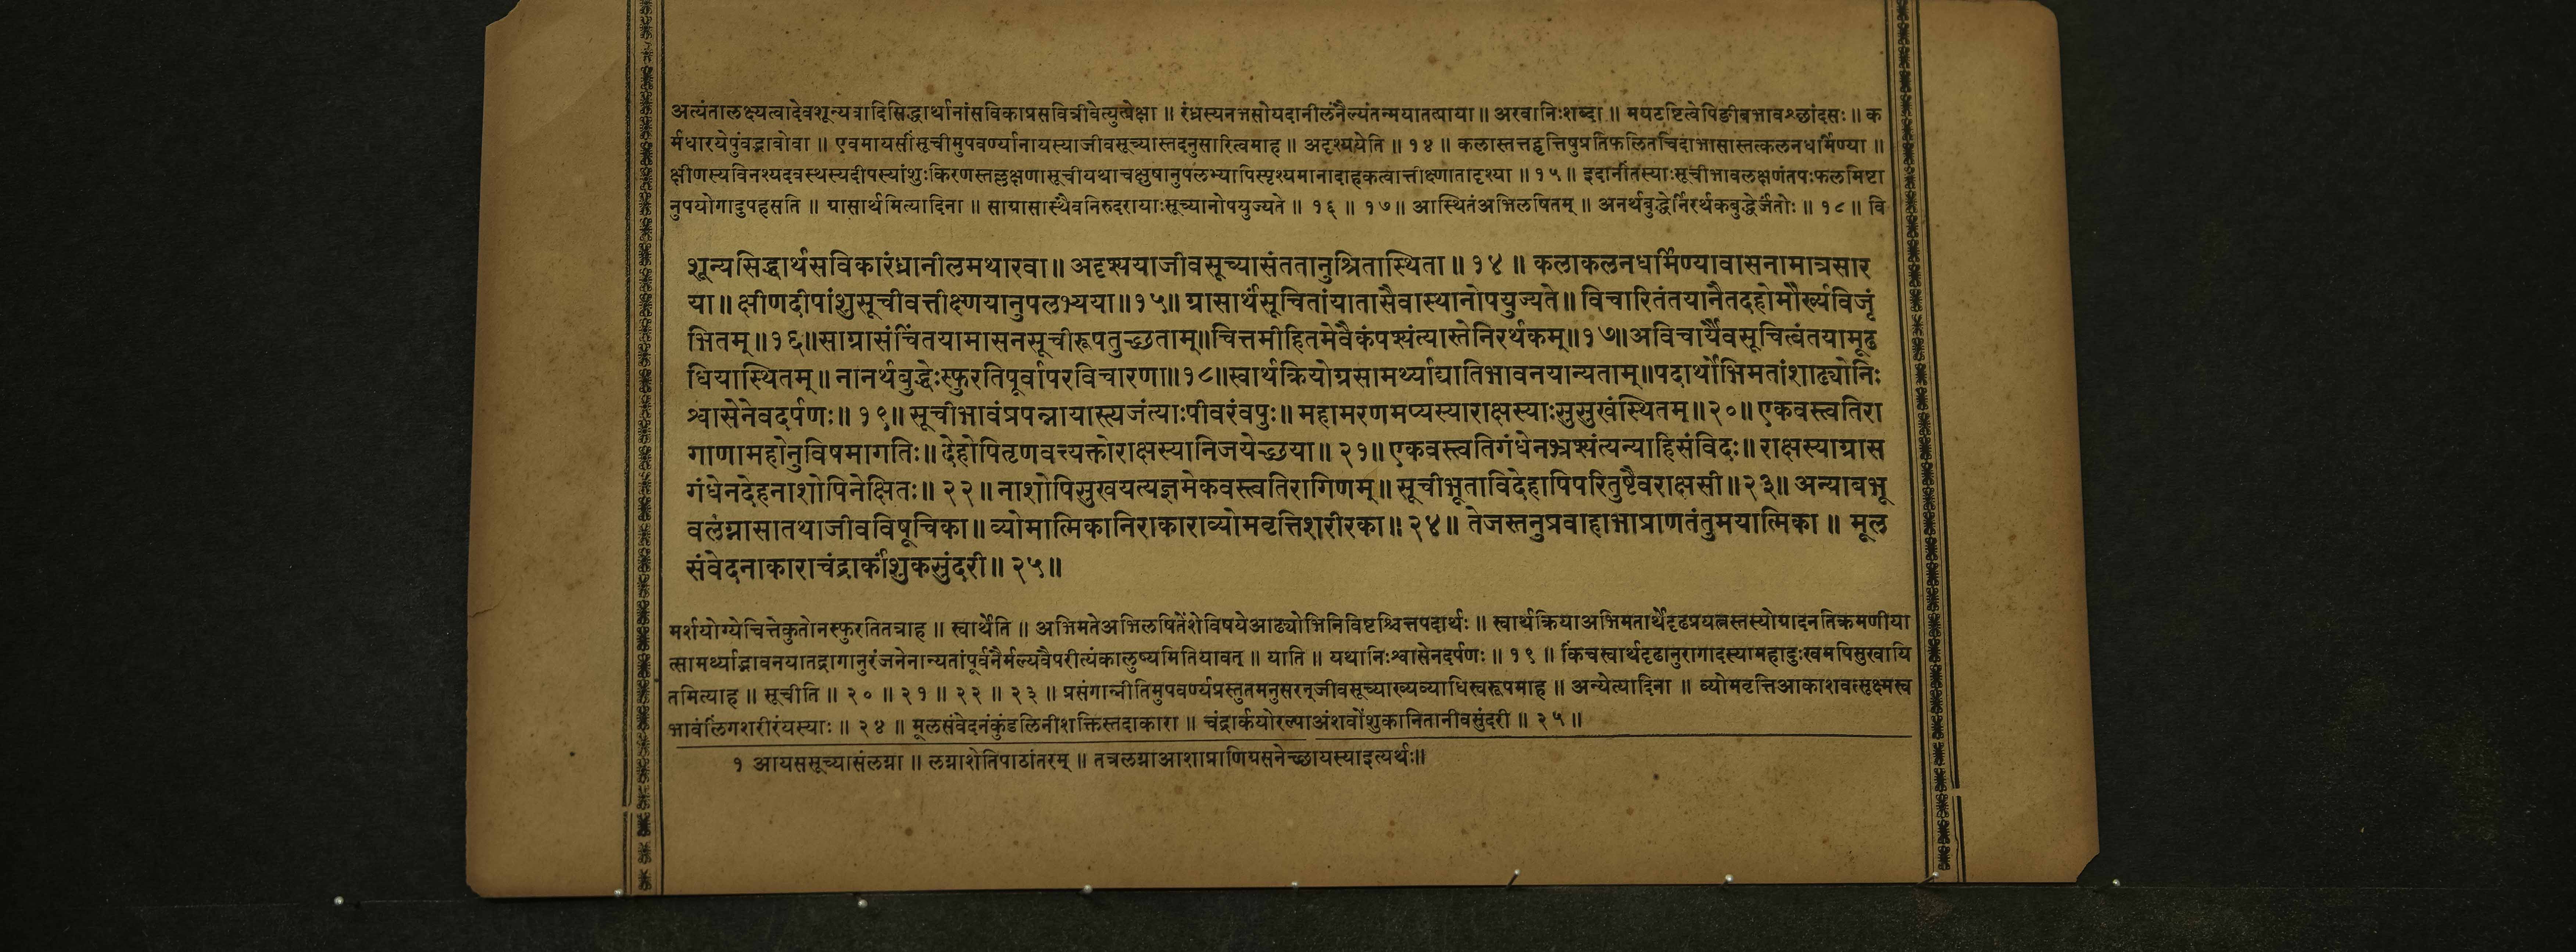 अत्यंतालक्ष्यत्वादेवशून्यवादिसिद्धार्थानांसविकाप्रसवित्रीवेत्युत्प्रेक्षा ॥ रंध्रस्यनभसोयदानीलंनैल्यंतन्मयातत्प्राया ॥ अरवानिःशब्दा ॥ मयटष्टित्वेपिङीबभावश्छांदसः ॥ क
र्मधारयेपुंवद्भावोवा ॥ एवमायसींसूचीमुपवर्ण्यानायस्याजीवसूच्यास्तदनुसारित्वमाह ॥ अदृश्ययेति ॥ १४ ॥ कलास्तत्तद्वृत्तिषुप्रतिफलितचिदाभासास्तत्कलनधर्मिण्या ॥
क्षीणस्यविनश्यदवस्थस्यदीपस्यांशुःकिरणस्तल्लक्षणासूचीयथाचक्षुषानुपलभ्यापिस्पृश्यमानादाहकत्वात्तीक्ष्णातादृश्या ॥ १५ ॥ इदानींतस्याःसूचीभावलक्षणंतपःफलमिष्टा
नुपयोगादुपहसति ॥ ग्रासार्थमित्यादिना ॥ साग्रासास्थैवनिरुदरायाःसूच्यानोपयुज्यते ॥ १६ ॥ १७ ॥ आस्थितंअभिलषितम् ॥ अनर्थबुद्धेर्निरर्थकबुद्धेर्जंतोः ॥ १८ ॥ वि
शून्यसिद्धार्थसविकारंध्रानीलमथारवा ॥ अदृश्ययाजीवसूच्यासंततानुश्रितास्थिता ॥ १४ ॥ कलाकलनधर्मिण्यावासनामात्रसार
या ॥ क्षीणदीपांशुसूचीवत्तीक्ष्णयानुपलभ्यया ॥ १५ ॥ ग्रासार्थंसूचितांयातासैवास्थानोपयुज्यते ॥ विचारितंतयानैतदहोमौर्ख्यविजृं
भितम् ॥ १६ ॥ साग्रासंचिंतयामासनसूचीरूपतुच्छताम् ॥ चित्तमीहितमेवैकंपश्यंत्यास्तेनिरर्थकम् ॥ १७ ॥ अविचार्यैवसूचित्वंतयामूढ
धियास्थितम् ॥ नानर्थबुद्धेःस्फुरतिपूर्वापरविचारणा ॥ १८ ॥ स्वार्थक्रियोग्रसामर्थ्याद्यातिभावनयान्यताम् ॥ पदार्थोभिमतांशाढ्योनिः
श्वासेनेवदर्पणः ॥ १९ ॥ सूचीभावंप्रपन्नायास्त्यजंत्याःपीवरंवपुः ॥ महामरणमप्यस्याराक्षस्याःसुसुखंस्थितम् ॥ २० ॥ एकवस्त्वतिरा
गाणामहोनुविषमागतिः ॥ देहोपितृणवत्त्यक्तोराक्षस्यानिजयेच्छया ॥ २१ ॥ एकवस्त्वतिगंधेनभ्रश्यंत्यन्याहिसंविदः ॥ राक्षस्याग्रास
गंधेनदेहनाशोपिनेक्षितः ॥ २२ ॥ नाशोपिसुखयत्यज्ञमेकवस्त्वतिरागिणम् ॥ सूचीभूताविदेहापिपरितुष्टैवराक्षसी ॥ २३ ॥ अन्याबभू
वलंग्नासातथाजीवविषूचिका ॥ व्योमात्मिकानिराकाराव्योमवृत्तिशरीरका ॥ २४ ॥ तेजस्तनुप्रवाहाभाप्राणतंतुमयात्मिका ॥ मूल
संवेदनाकाराचंद्रार्कांशुकसुंदरी ॥ २५ ॥
मर्शयोग्येचित्तेकुतोनस्फुरतितत्राह ॥ स्वार्थेति ॥ अभिमतेअभिलषितेंशेविषयेआढ्योभिनिविष्टश्चित्तपदार्थः ॥ स्वार्थक्रियाअभिमतार्थेदृढप्रयत्नस्तस्योग्रादनतिक्रमणीया
त्सामर्थ्याद्भावनयातद्रागानुरंजनेनान्यतांपूर्वनैर्मल्यवैपरीत्यंकालुष्यमितियावत् ॥ याति ॥ यथानिःश्वासेनदर्पणः ॥ १९ ॥ किंचस्वार्थदृढानुरागादस्यामहादुःखमपिसुखायि
तमित्याह ॥ सूचीति ॥ २० ॥ २१ ॥ २२ ॥ २३ ॥ प्रसंगान्नीतिमुपवर्ण्यप्रस्तुतमनुसरन्जीवसूच्याख्यव्याधिस्वरूपमाह ॥ अन्येत्यादिना ॥ व्योमवृत्तिआकाशवत्सूक्ष्मस्व
भावंलिंगशरीरंयस्याः ॥ २४ ॥ मूलसंवेदनंकुंडलिनीशक्तिस्तदाकारा ॥ चंद्रार्कयोरल्पाअंशवोंशुकानितानीवसुंदरी ॥ २५ ॥
१ आयससूच्यासंलग्ना ॥ लग्नाशेतिपाठांतरम् ॥ तत्रलग्नाआशाप्राणिग्रसनेच्छायस्याइत्यर्थः॥